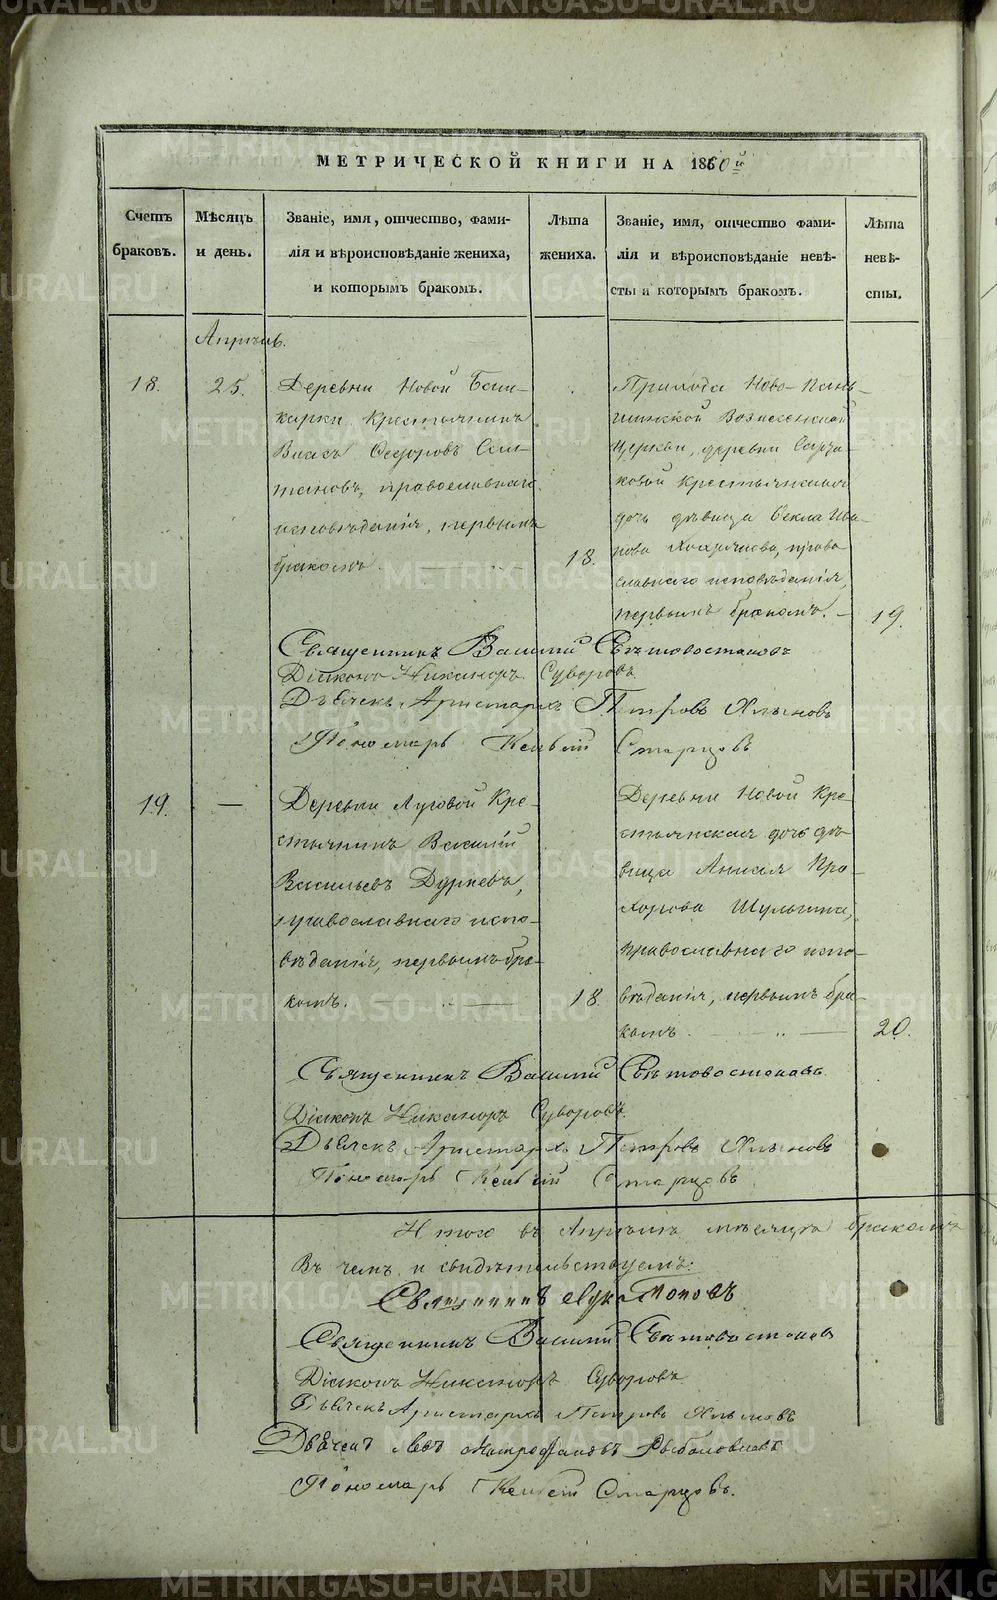 МЕТРИЧЕСКОЙ КНИГИ НА 1860й
Счетъ браковъ.
Мѣсяцъ и день.
Званіе, имя, отчество, фами-
лія и вѣроисповѣданіе жениха,
и которымъ бракомъ.
Лѣта
жениха.
Званіе, имя, отчество фами-
лія и вѣроисповѣданіе невѣ-
сты и которымъ бракомъ.
Лѣта
невѣ-
сты.
Апрѣль.
18.
25.
Деревни Новой Баш-
карки Крестьянинъ
Власъ Ѳедоровъ Сал-
тановъ, православнаго
исповѣданія, первымъ
бракомъ.
18.
Прихода Ново-Пань-
шинской Вознесенской
Церкви, деревни
Крестьянская
дочь дѣвица Ѳекла Ива-
нова право-
славнаго исповѣданія,
первымъ бракомъ.
19.
Священникъ Василій Свѣтовостоковъ
Діаконъ Никаноръ Суворовъ
Дьячекъ Аристархъ Петровъ Хлыновъ
Пономарь Старцовъ
19.
—
Деревни Луговой Кре-
стьянинъ Василій
Васильевъ Дурневъ,
православнаго испо-
вѣданія, первымъ бра-
комъ.
18.
Деревни Новой Кре-
стьянская дочь дѣ-
вица Анисія Про-
хорова Шульгина,
православнаго испо-
вѣданія, первымъ бра-
комъ
20.
Священникъ Василій Свѣтовостоковъ
Діаконъ Никаноръ Суворовъ
Дьячекъ Аристархъ Петровъ Хлыновъ
Пономарь Старцовъ
Итого въ Апрѣлѣ мѣсяцѣ браковъ
Въ чемъ и свидѣтельствуемъ:
Священникъ
Священникъ Василій Свѣтовостоковъ
Діаконъ Никаноръ Суворовъ
Дьячекъ Аристархъ Петровъ Хлыновъ
Дьячекъ Левъ Митрофановъ
Пономарь Старцовъ.
METRIKI.GASO-URAL.RU